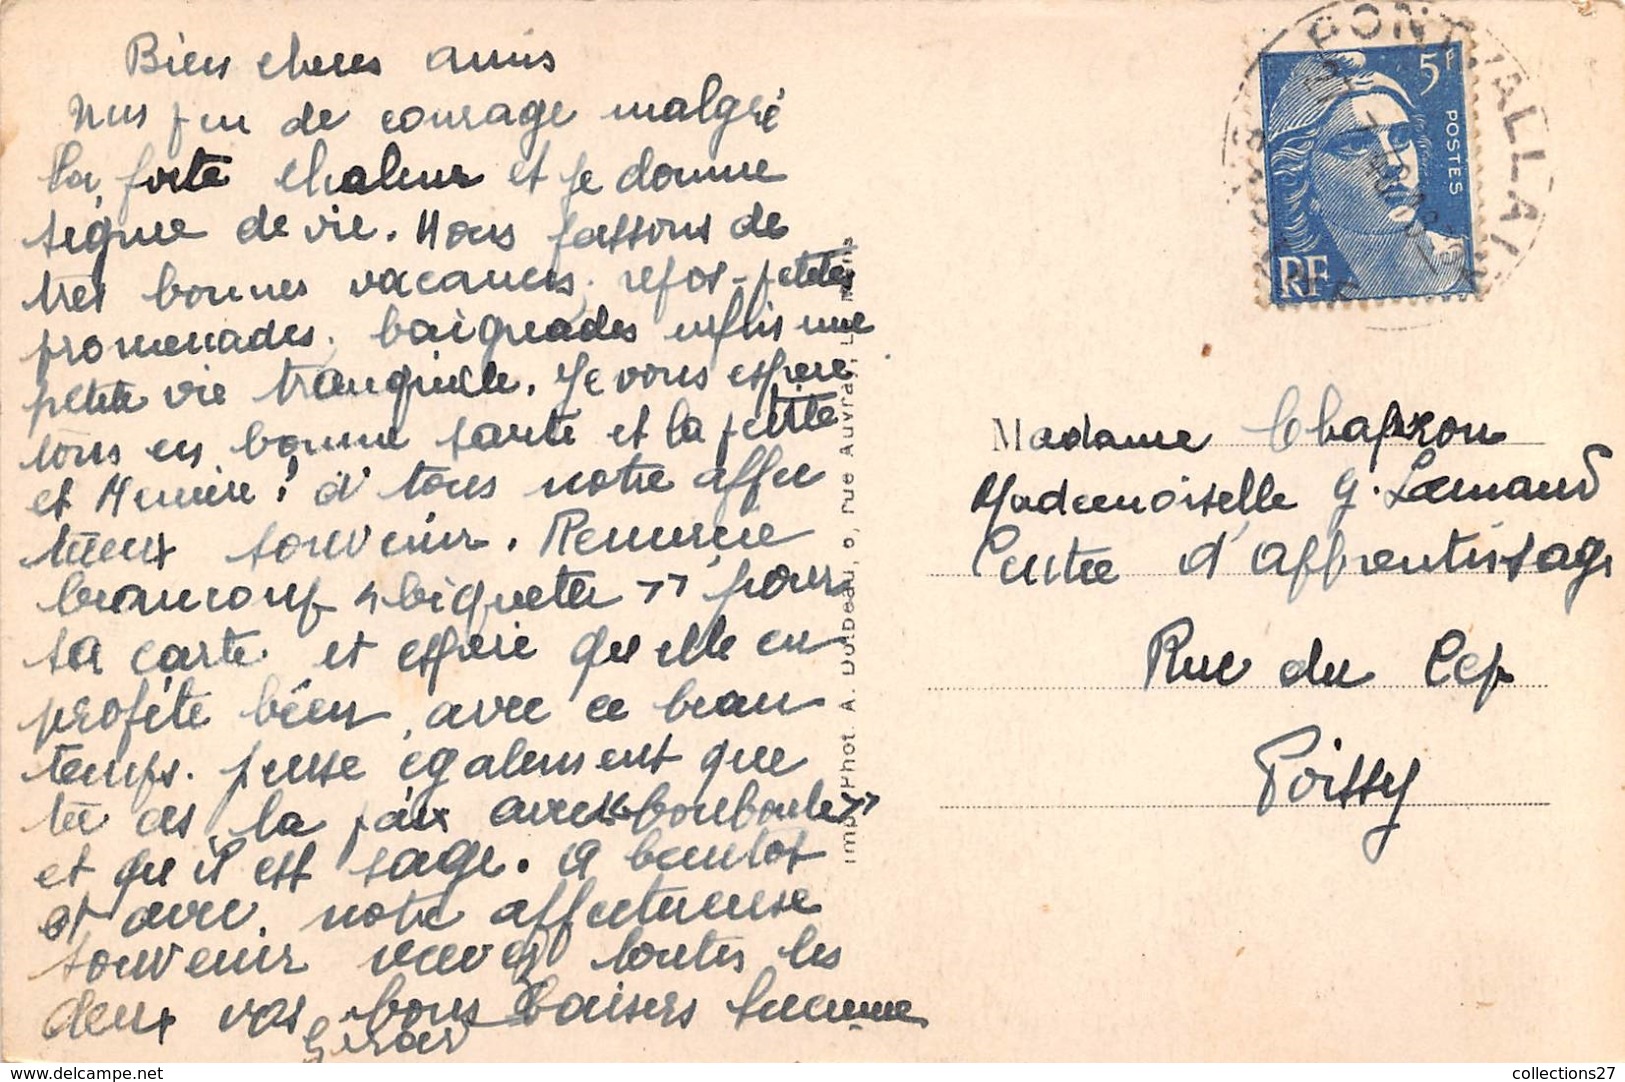 Bien cheres amis
un peu de courage malgré
la forte chaleur et je donne
signe de vie. Nous passons de
tres bonnes vacances, repos - petites
promenades, baignades enfin une
petite vie tranquille. Je vous espere
tous en bonne santé et la petite
et Mémère! à tous notre affec
tueux souvenir. Remercie
beaucoup "biquette" pour
sa carte et espere qu'elle en
profite bien, avec ce beau
temps. pense également que
tu as la paix avec "bouboule"
et qu'il est sage. A bientot
et avec notre affectueuse
souvenir recevez toutes les
deux nos bons baisers Lucienne
Girard
PONTVALLAIN
SARTHE
5F
POSTES
RF
Madame Chapron
Mademoiselle G. Lemans
Centre d'apprentissage
Rue du Cep
Poissy
Imp. Phot. A. Dolbeau, rue Auvray, Le Mans
collections27